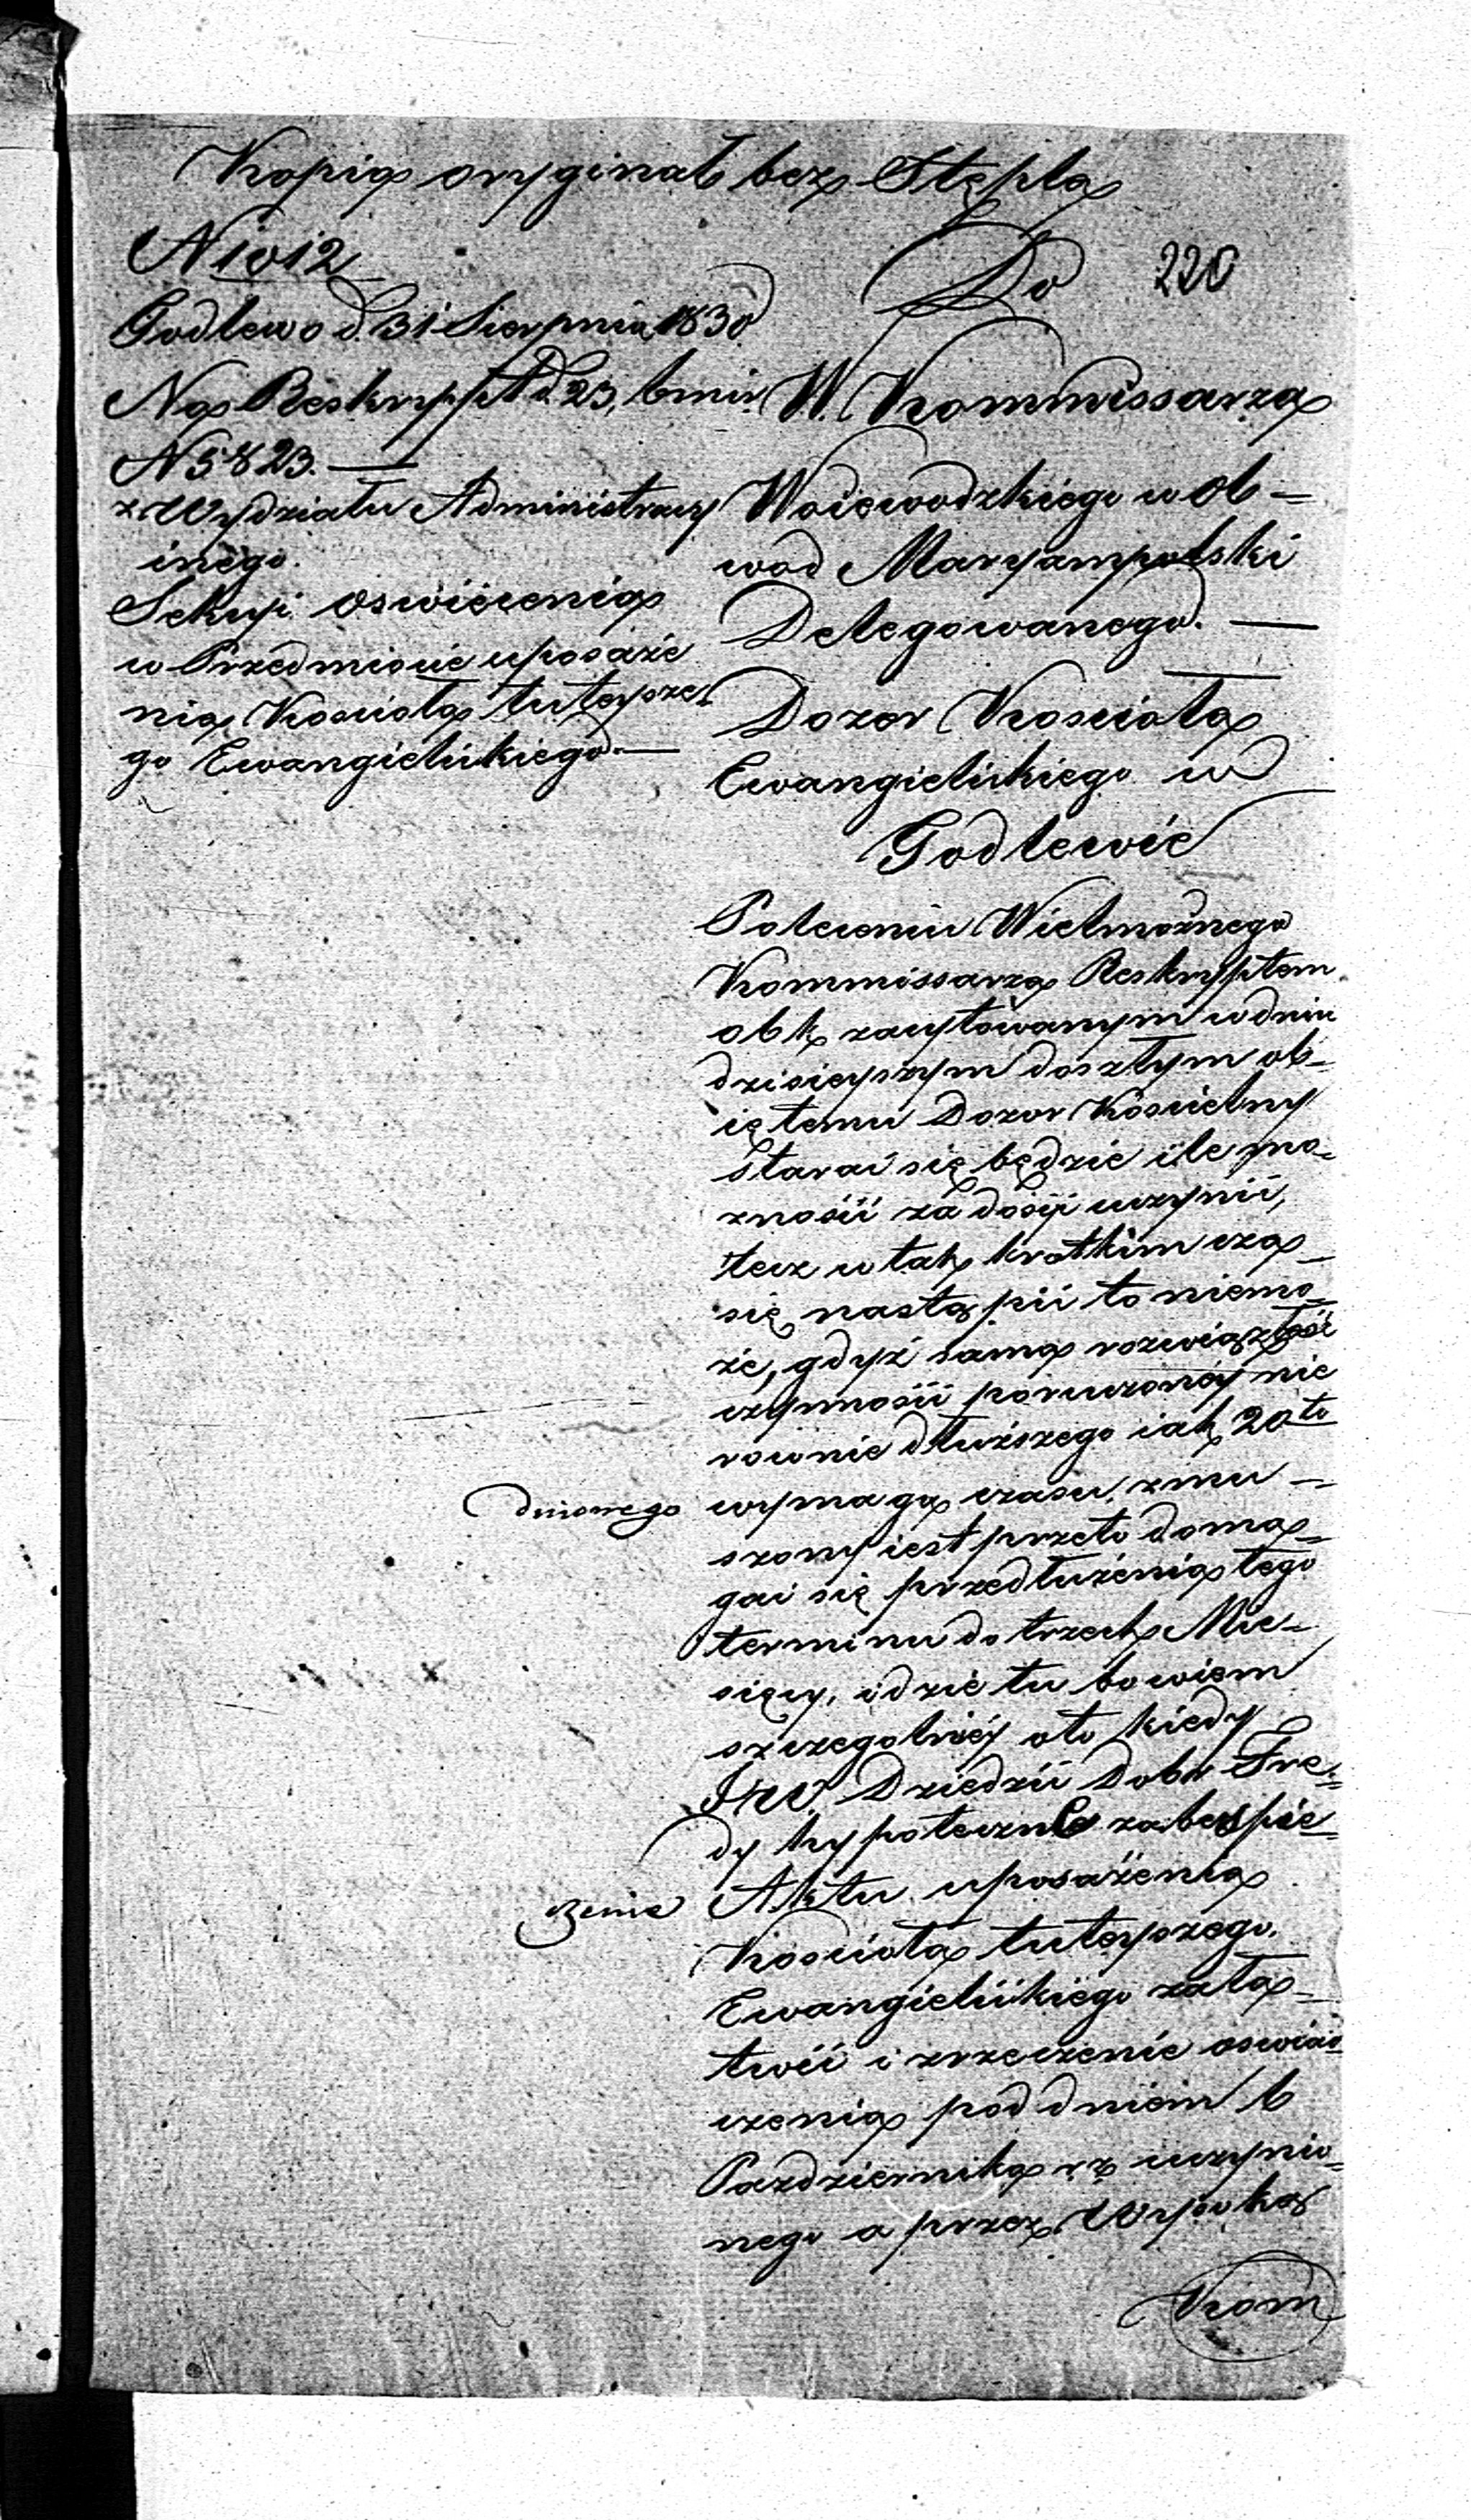 Kopia oryginał bez Stępla
N 1012
Godlewo d. 31 Sierpnia 1830
Na Reskrypt d 23, bmir.
N 5823. —
z Wydziału Administracy
inego.
Sekcyi Oswiécenia
w Przedmiocie uposaże
nia Kościoła tuteysze
go Ewangielickiego. —
Do
220
W. Kommissarza
Woiewodzkiego w Ob-
wod Maryampolski
Delegowanego. —
Dozor Kosciola
Ewangielickiego w
Godlewie
Poleceniu Wielmożnego
Kommissarza Reskryptem
obk zacytowanym w dniu
dzisieyszym doszłym ob-
iętemu Dozor Kościelny
starać się będzie ile mo-
zności za dosyć uczynić,
lecz w tak krotkim cza-
się nastąpić to niemo-
że, gdyż sama rozwiązłość
czynności poruczoney nie
rownie dłuższego iak 20to
dniowego wymaga czasu, zmu-
szony iest przeto doma-
gać się przedłużenia tego
terminu do trzech Mie-
sięcy, idzie tu bowiem
szczegolniéy oto kiedy
JW. Dziedzic Dobr Fre-
dy hypoteczne zabespie-
czenie Aktu uposażenia
Kosciola tuteyszego
Ewangielickiego zała-
twić i zrzeczenie oswiad
czenia pod dniem 6
Pazdziernika r z uczynio-
nego a przez Wysoką
Kom